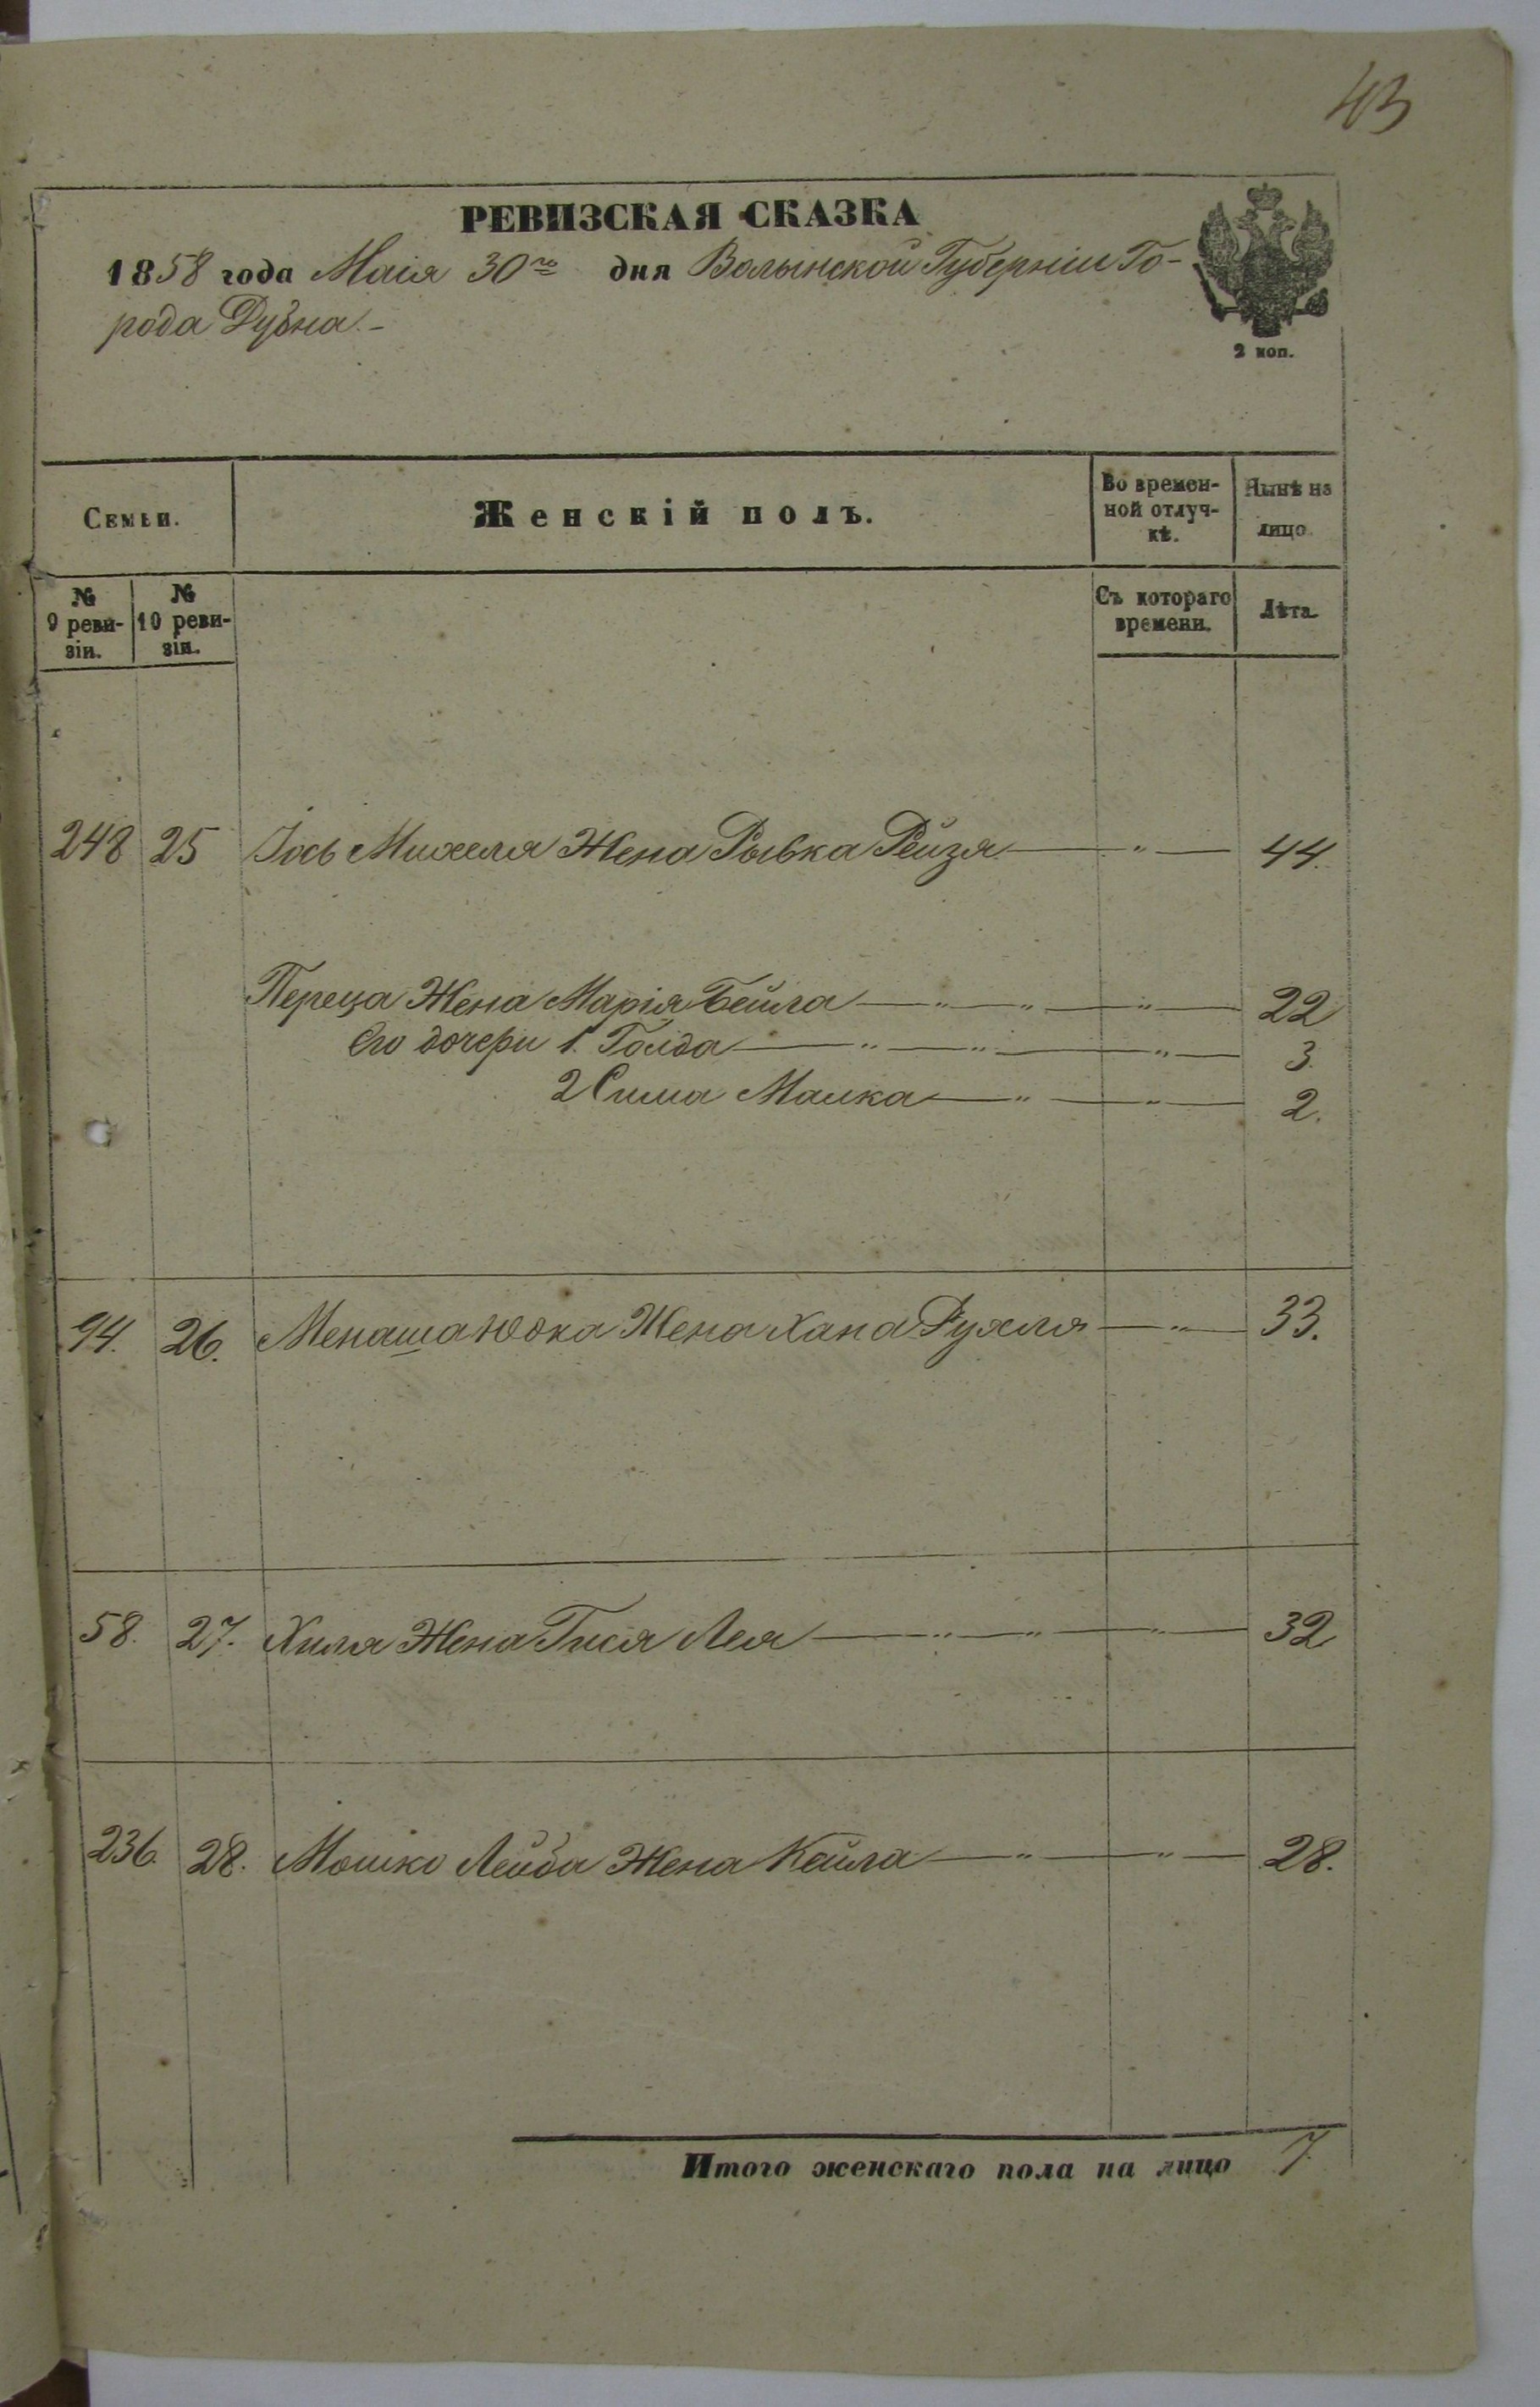 43
РЕВИЗСКАЯ СКАЗКА
1858 года Маія 30го дня Волынской Губерніи Го-
рода Дубна.-
2 коп.
Семьи.
Женскій полъ.
Во времен-
ной отлуч-
кѣ.
Нынѣ на
лицо.
№
9 реви-
зіи.
№
10 реви-
зіи.
Съ котораго
времени.
Лѣта.
248 25 Іось Михеля Жена Рывка Рейзя — " — 44.
Переца Жена Марія Бейла — " — " — " — 22
Его дочери 1. Голда — " — " — " — 3.
2 Сима Малка — " — " — 2.
94. 26. Менаша Юока Жена Хана Рухля — " — 33.
58. 27. Хиля Жена Гися Лея — " — " — " — 32
236. 28. Мошко Лейба Жена Кейла — " — " — 28.
Итого женскаго пола на лицо 7.